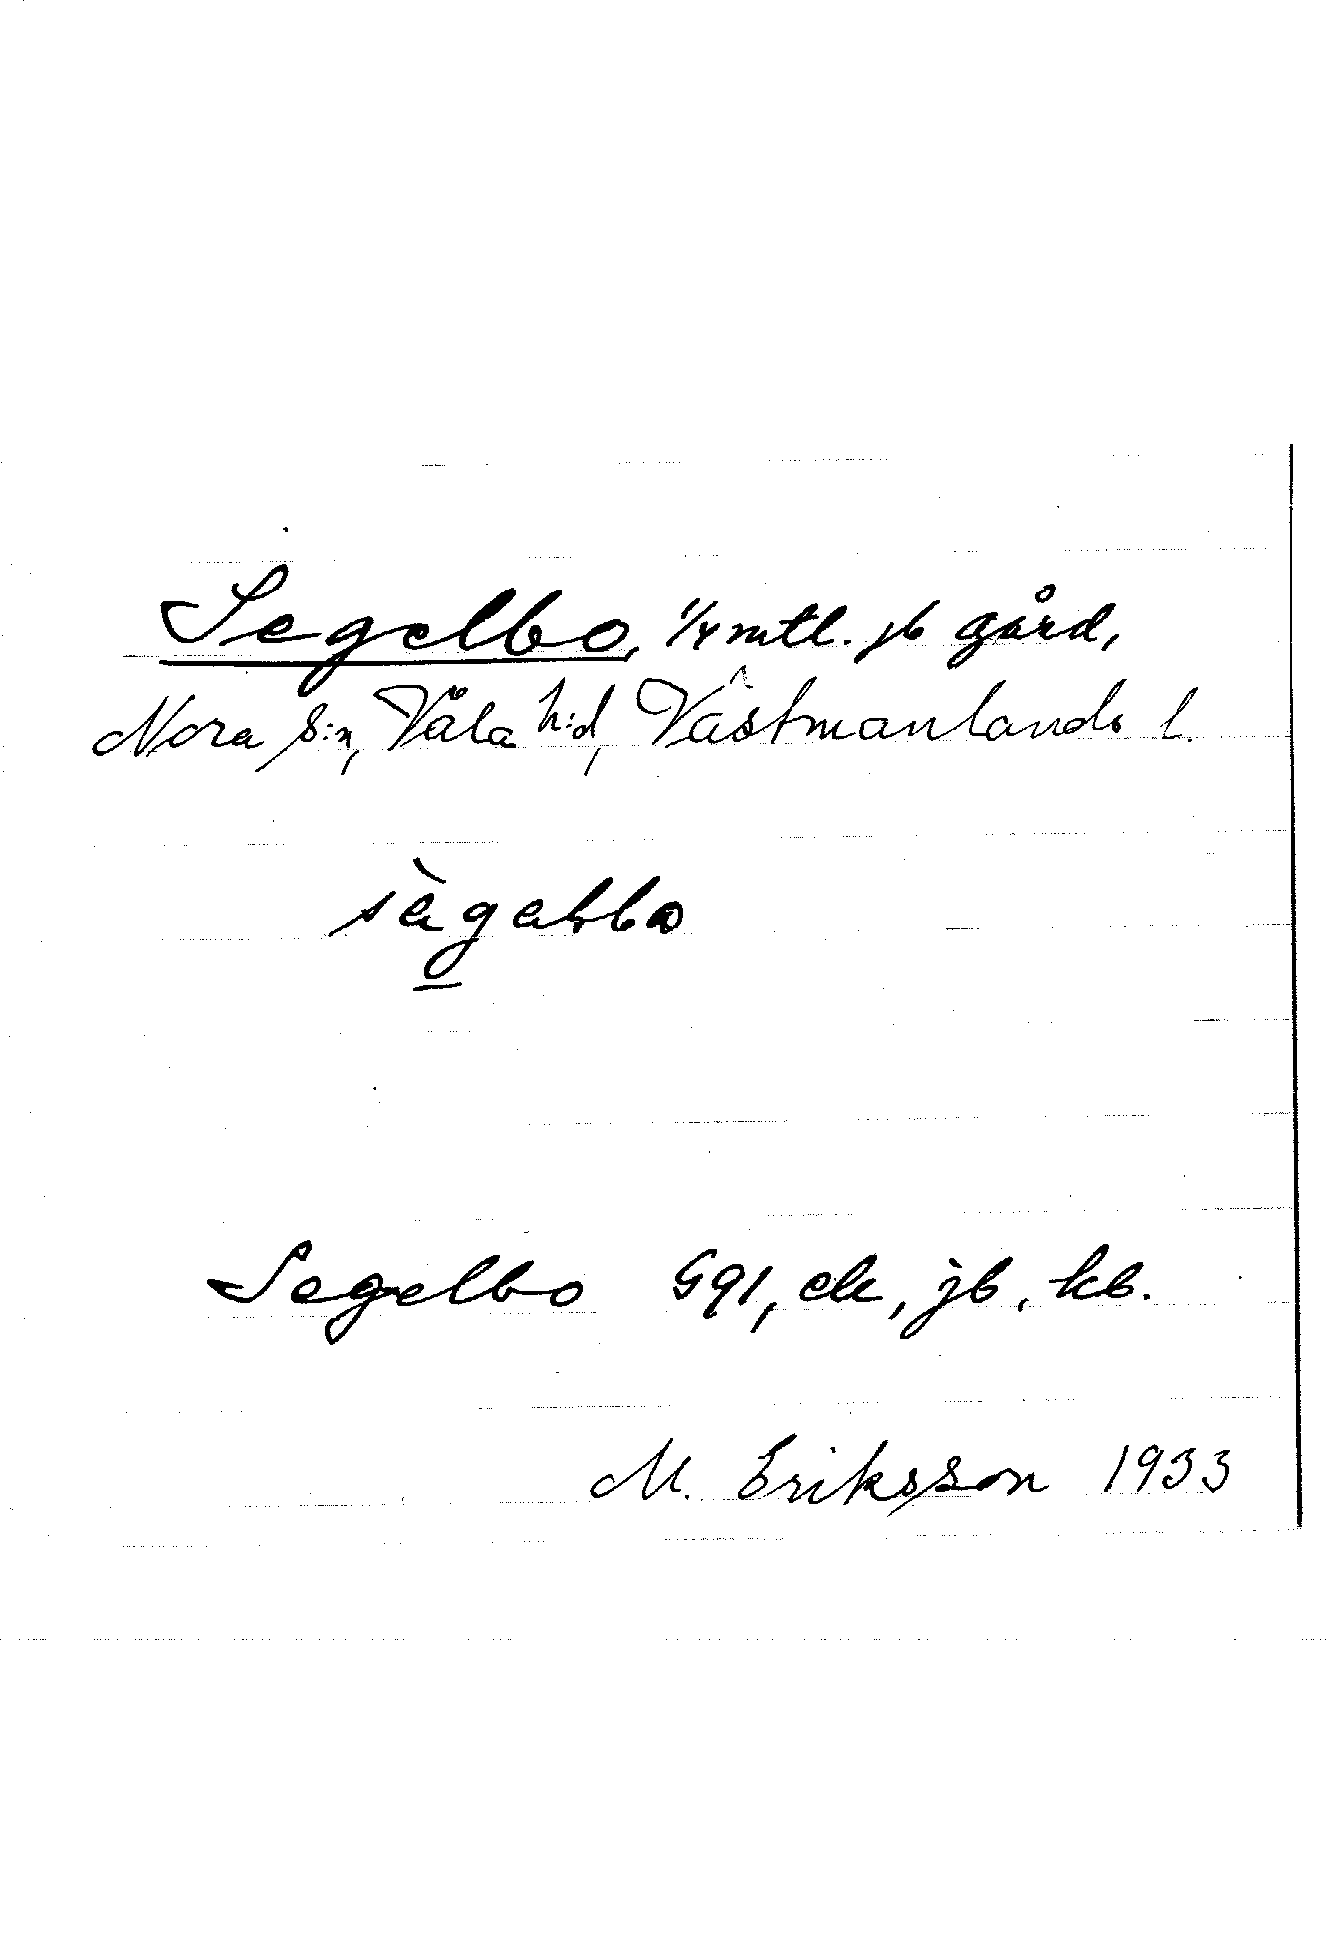 Segelbo, 1/4 mtl. jb gård,
Nora s:n, Våla h:d, Västmanlands l.
Segelbo G91, ek, jb, kb.
M. Eriksson 1933